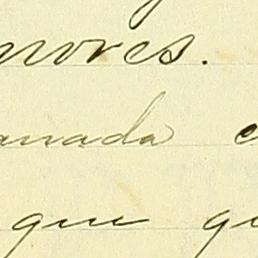 nores.
anada
que